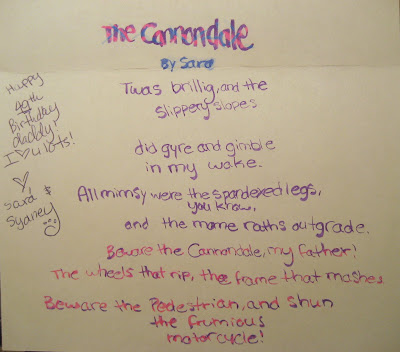 The Cannondale
By Sara
Happy
49th
Birthday
daddy!
I ♡ u lots!
♡,
Sara &
Sydney
Twas brillig, and the
slippery slopes
did gyre and gimble
in my wake.
All mimsy were the spandexed legs,
you know,
and the mome raths outgrade.
Beware the Cannondale, my father!
The wheels that rip, the frame that mashes
Beware the Pedestrian, and shun
the frumious
motorcycle!